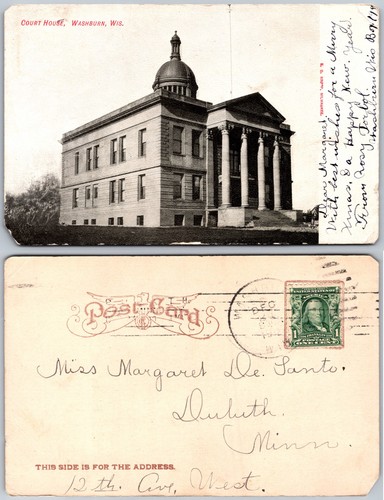 COURT HOUSE, WASHBURN, WIS.
Dear Margaret,
With best wishes for a Merry
Xmas, & a Happy New Year.
From Rosy
Washburn Wis
Post Card
DEC
UNITED STATES POSTAGE
1 1
Miss Margaret De Santo.
Duluth,
Minn.
THIS SIDE IS FOR THE ADDRESS.
12th Ave, West.